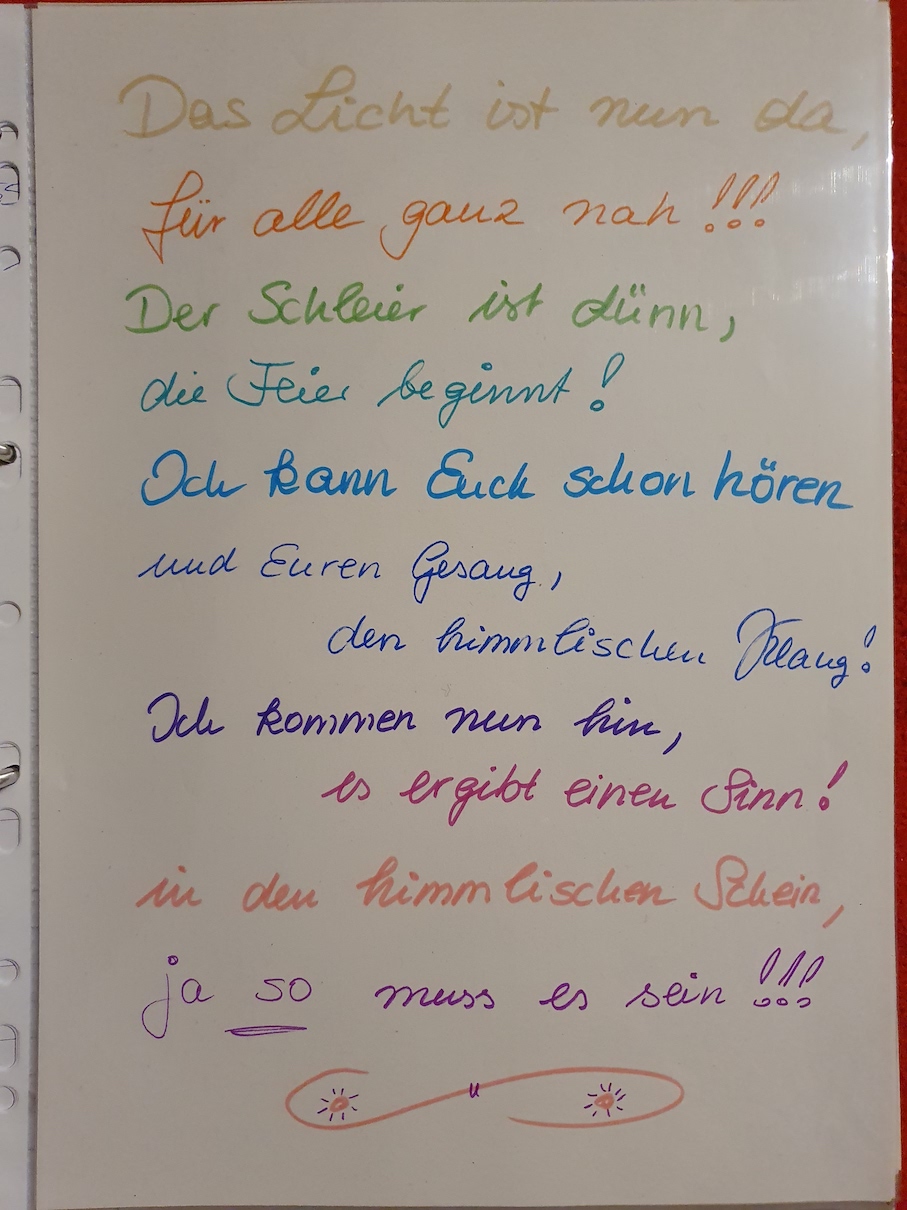 Das Licht ist nun da,
für alle ganz nah !!!
Der Schleier ist dünn,
die Feier beginnt!
Ich kann Euch schon hören
und Euren Gesang,
den himmlischen Klang!
Ich kommen nun hin,
es ergibt einen Sinn!
in den himmlischen Schein,
ja so muss es sein !!!